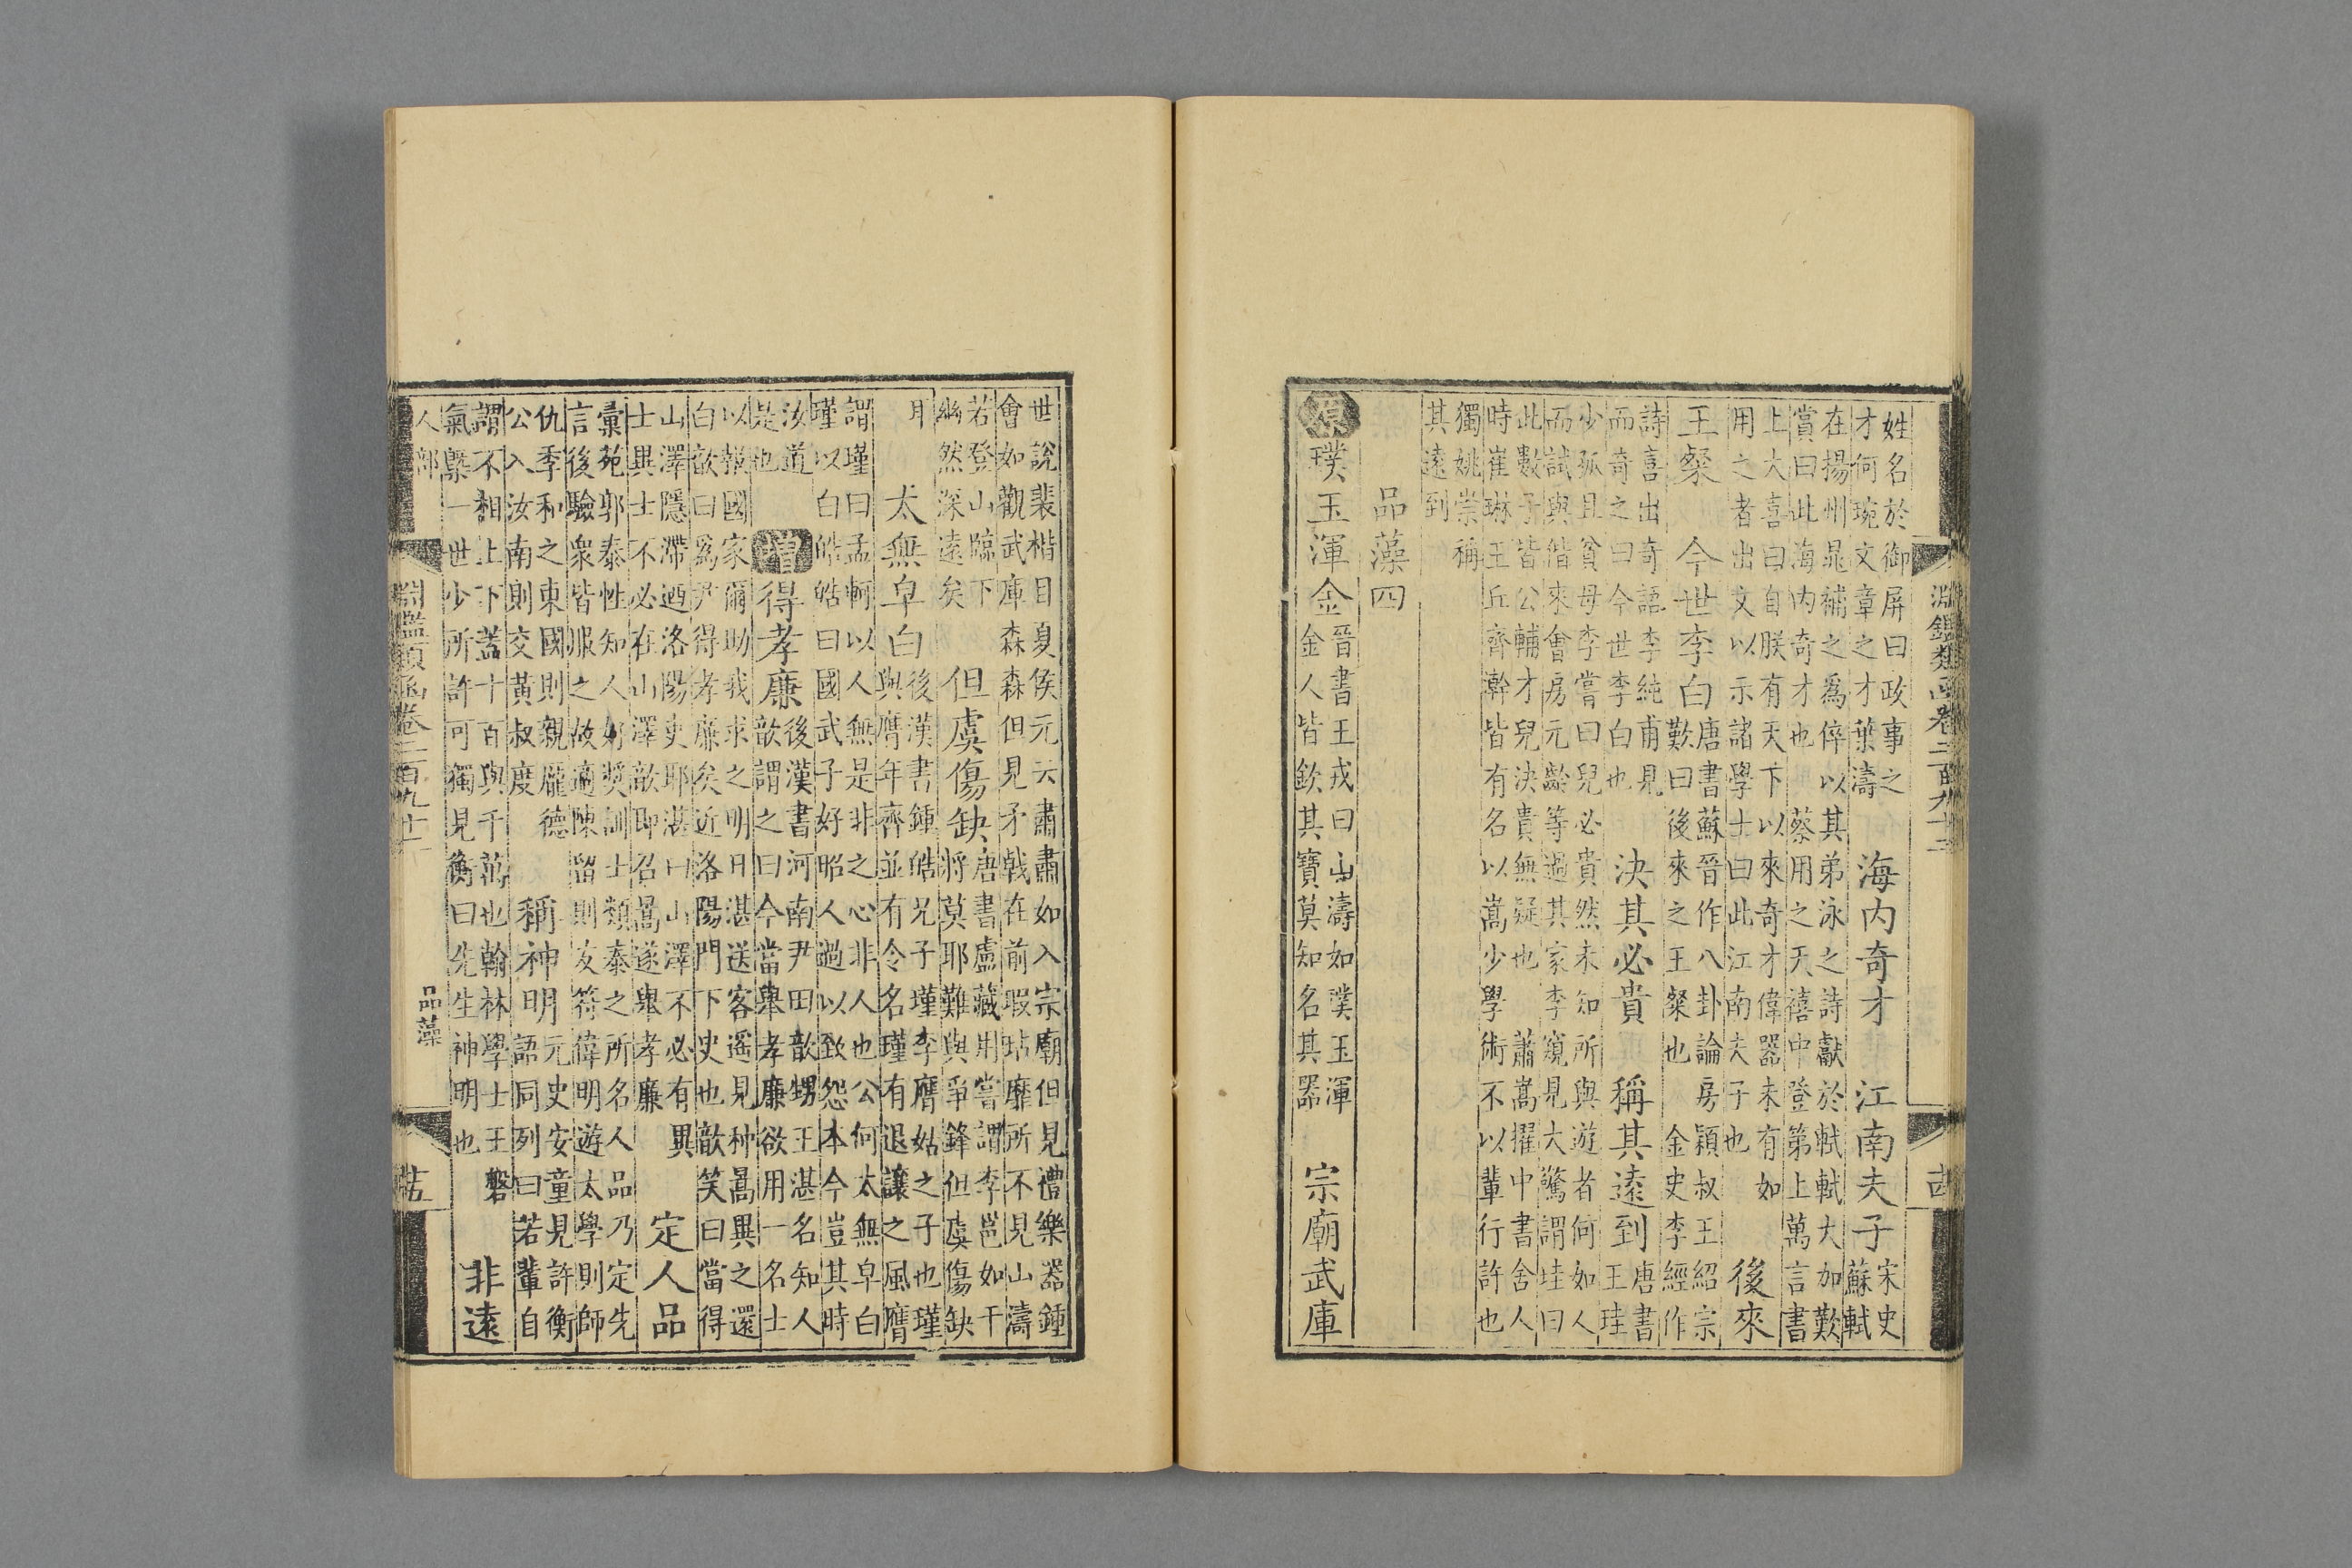 淵鑑類函卷二百九十三
姓名於御屏曰政事之
才何琬文章之才葉濤
海内奇才　江南夫子
宋史
蘇軾
在揚州晁補之爲倅以其弟泳之詩獻於軾軾大加歎
賞曰此海内奇才也　蔡用之天禧中登第上萬言書
上大喜曰自朕有天下以來奇才偉器未有如
用之者出文以示諸學士曰此江南夫子也
後來
王粲　今世李白
唐書蘇晉作八卦論房穎叔王紹宗
歎曰後來之王粲也　金史李經作
詩喜出奇語李純甫見
而奇之曰今世李白也
決其必貴　稱其遠到
唐書
王珪
少孤且貧母李嘗曰兒必貴然未知所與遊者何如人
而試與偕來會房元齡等過其家李窺見大驚謂珪曰
此數子皆公輔才兒決貴無疑也　蕭嵩擢中書舍人
時崔琳王丘齊澣皆有名以嵩少學術不以輩行許也
獨姚崇稱
其遠到
品藻四
原　璞玉渾金
晉書王戎曰山濤如璞玉渾
金人皆欽其寶莫知名其器
宗廟武庫
世說裴楷目夏侯元云肅肅如入宗廟但見禮樂器鍾
會如觀武庫森森但見矛戟在前瑕玷靡所不見山濤
若登山臨下
幽然深遠矣
但虞傷缺
唐書盧藏用嘗謂李邕如干
將莫耶難與爭鋒但虞傷缺
耳
太無皁白
後漢書鍾皓兄子瑾李膺姑之子也瑾
與膺年齊並有令名瑾有退讓之風膺
謂瑾曰孟軻以人無是非之心非人也公何太無皁白
瑾以白皓皓曰國武子好昭人過以致怨本今豈其時
汝道
是也
增　得孝廉
後漢書河南尹田歆甥王湛名知人
歆謂之曰今當舉孝廉欲用一名士
以報國家爾助我求之明日湛送客遙見种暠異之還
白歆曰爲尹得孝廉矣近洛陽門下史也歆笑曰當得
山澤隱滯迺洛陽吏耶湛曰山澤不必有異
士異士不必在山澤歆即召暠遂舉孝廉
定人品
彙苑郭泰性知人好獎訓士類泰之所名人品乃定先
言後驗衆皆服之故適陳留則友符偉明遊太學則師
仇季和之東國則親龐德
公入汝南則交黃叔度
稱神明
元史安童見許衡
語同列曰若輩自
謂不相上下蓋十百與千萬也翰林學士王磐
氣槩一世少所許可獨見衡曰先生神明也
非遠
人部　品藻
淵鑑類函卷二百九十三